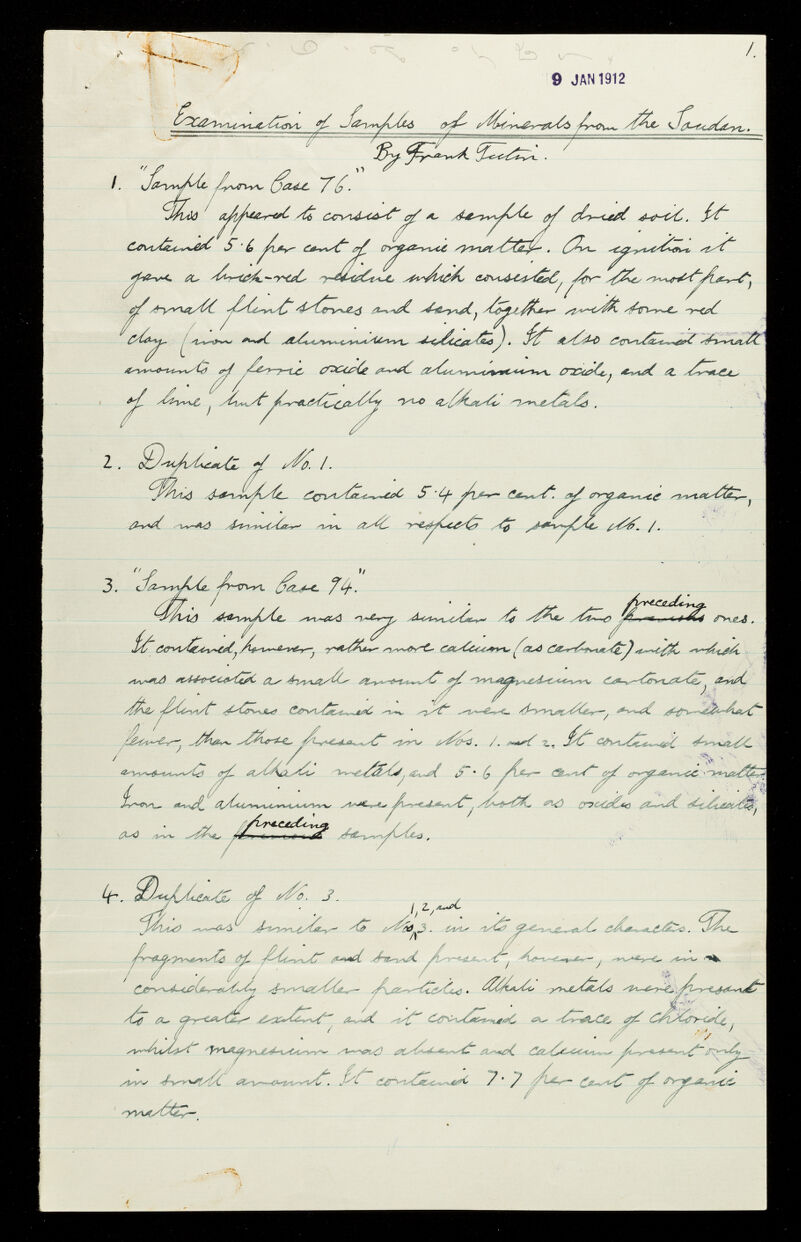 1.
9 JAN 1912
Examination of Samples of Minerals from the Soudan.
By Frank Tutin.
1. "Sample from Case 76."
This appeared to consist of a sample of dried soil. It
contained 5·6 per cent of organic matter. On ignition it
gave a brick-red residue which consisted, for the most part,
of small flint stones and sand, together with some red
clay (iron and aluminium silicates). It also contained small
amounts of ferric oxide and aluminium oxide, and a trace
of lime, but practically no alkali metals.
2. Duplicate of No. 1.
This sample contained 5·4 per cent. of organic matter,
and was similar in all respects to sample No. 1.
3. "Sample from Case 94."
This sample was very similar to the two preceding ones.
It contained, however, rather more calcium (as carbonate) with which
was associated a small amount of magnesium carbonate, and
the flint stones contained in it were smaller, and somewhat
fewer, than those present in Nos. 1. and 2. It contained small
amounts of alkali metals, and 5·6 per cent of organic matter.
Iron and aluminium were present, both as oxides and silicates,
as in the preceding samples.
4. Duplicate of No. 3.
This was similar to Nos 1, 2, and 3. in its general characters. The
fragments of flint and sand present, however, were in
considerably smaller particles. Alkali metals were present
to a greater extent, and it contained a trace of chloride,
whilst magnesium was absent and calcium present only
in small amount. It contained 7·7 per cent of organic
matter.